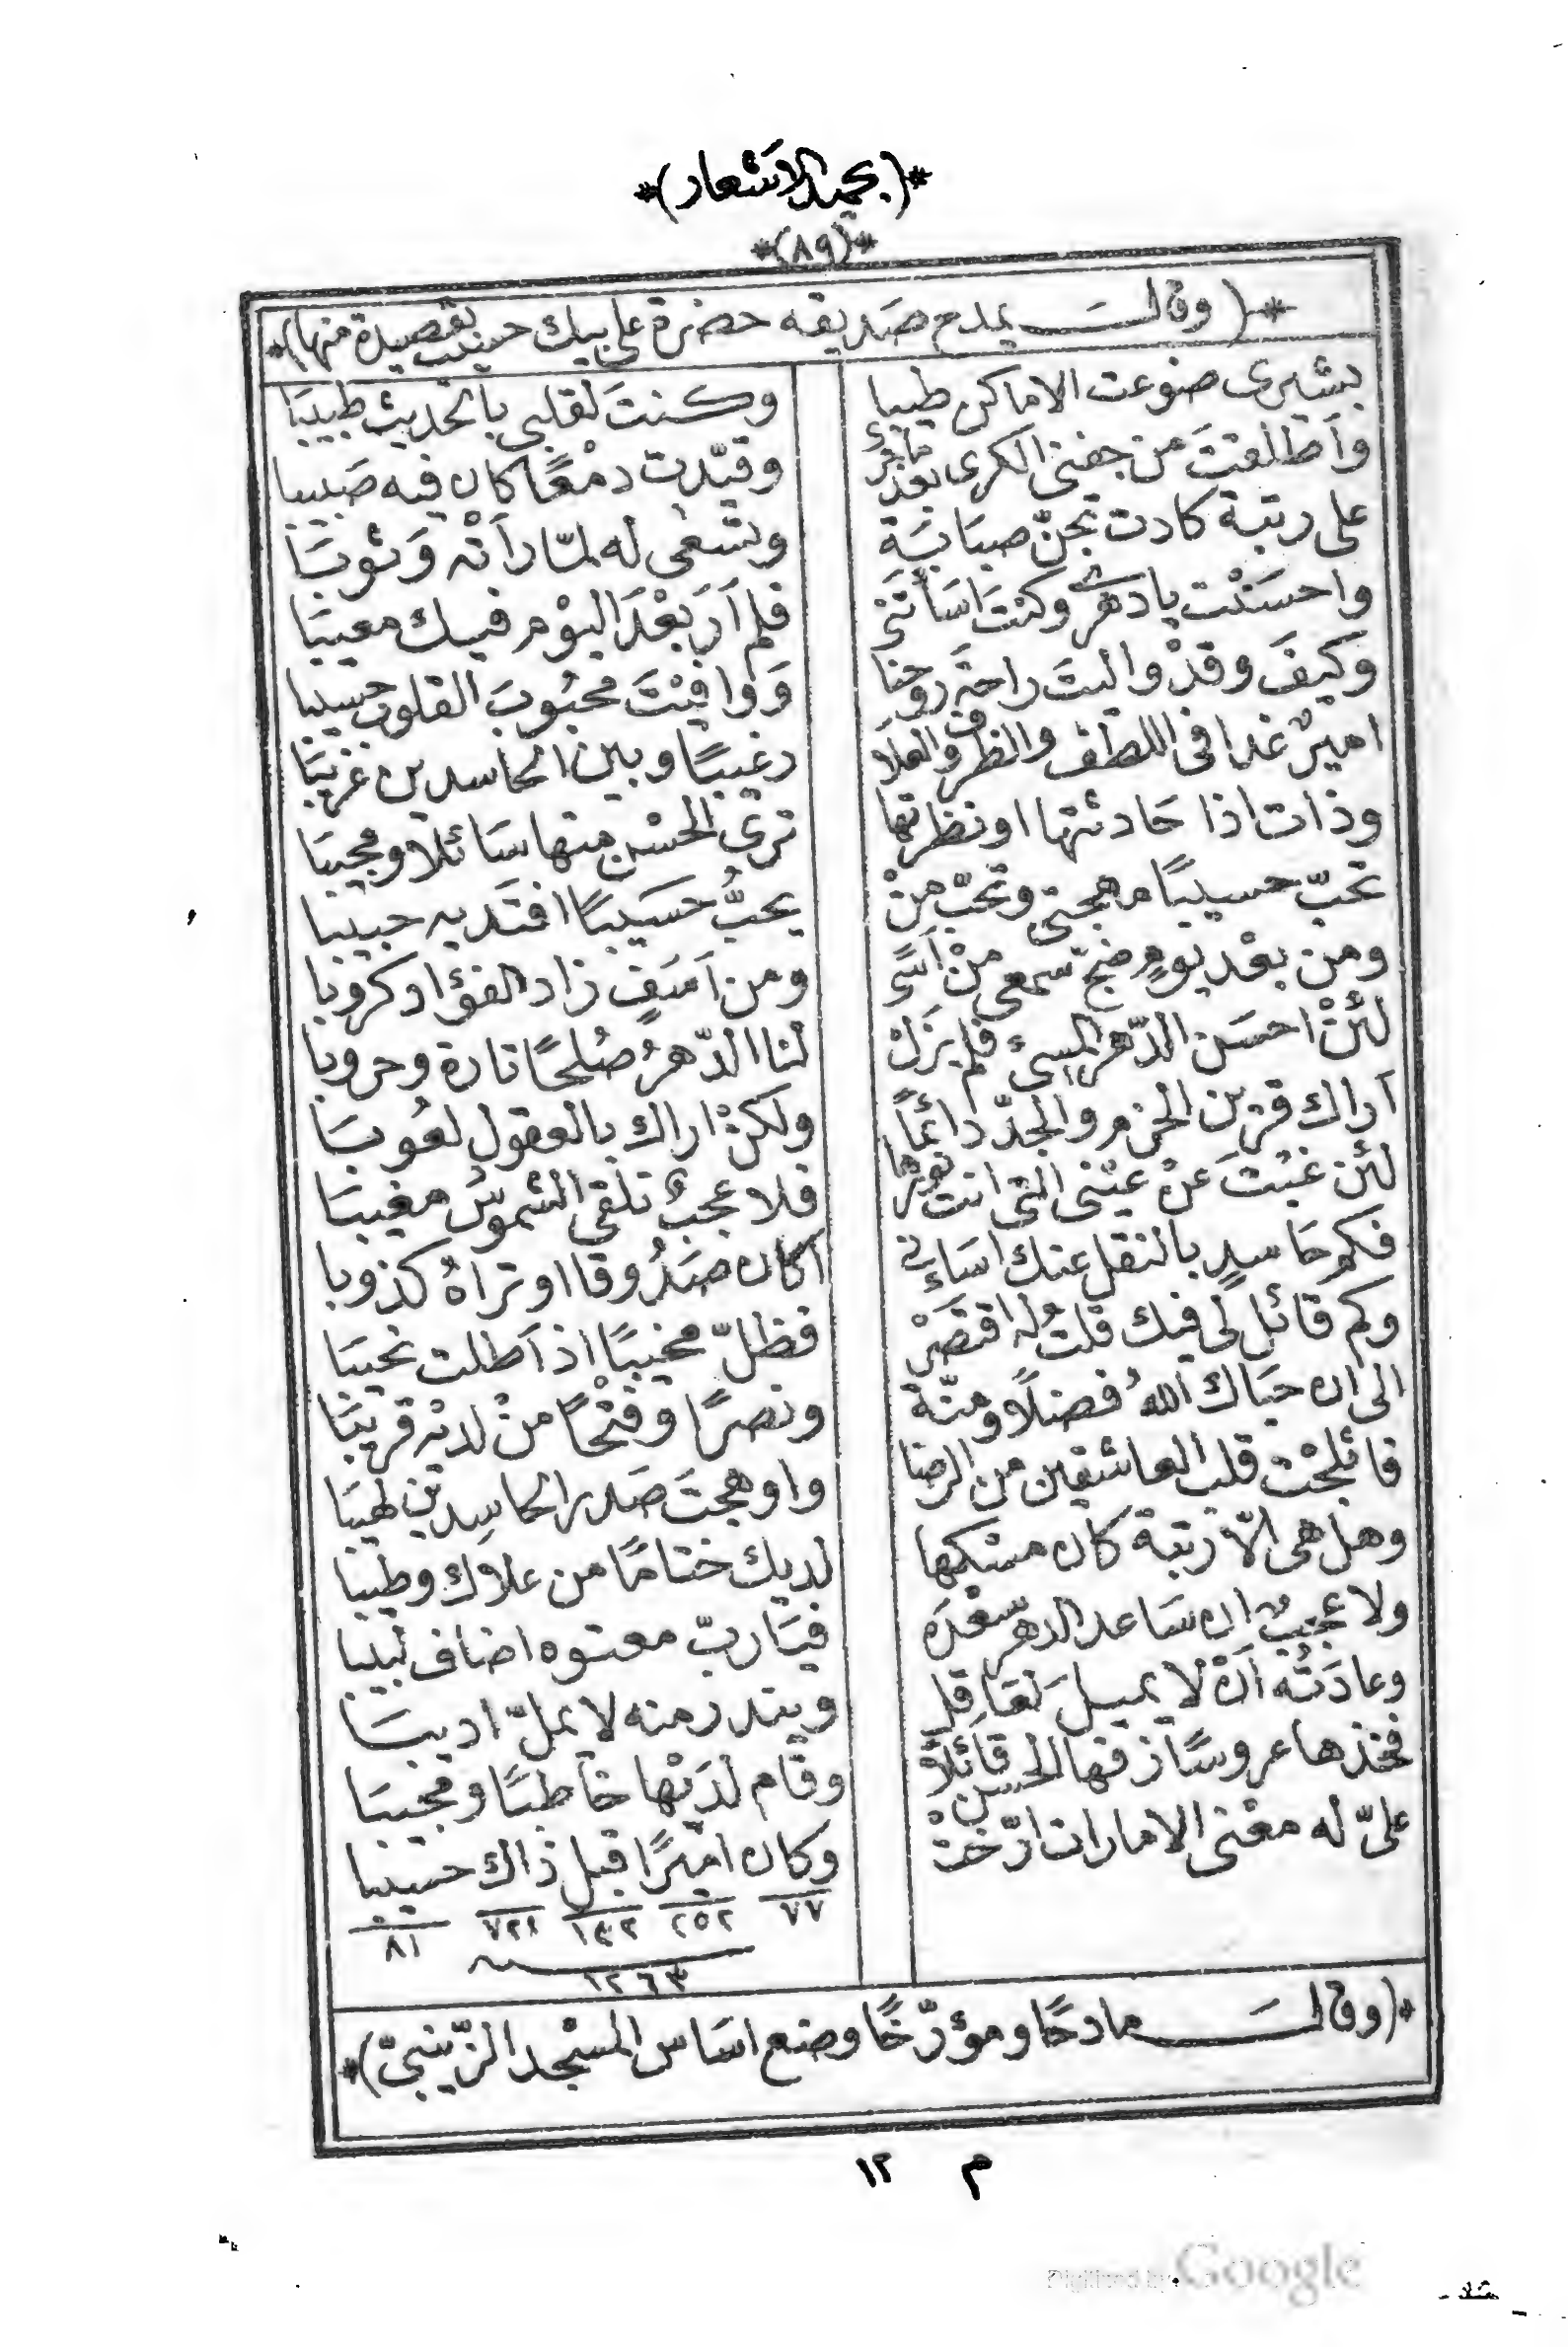 *(بحميد الاَشعار)*
*(٨٩)*
*(وقالَ يمدح صَديقه حضرة على بيك حسيب بقصيدة منها)*
بشيرى ضوعت الاماكن طيبا وكنتَ لقلبي بالحديث طبيبَا
وَاَطلقتَ من جفنى الكرى بعد وقيّدت دمْعًا كان فيه صَبيبا
على رتبة كادت تجنّ صبَابَة وتسْعى له لمّا رَاَتْه وَثوبَا
واحسَنْت يا دهرُ وكنتَ اسَاْتَنى فلم اَرَ بَعْدَ اليوْم فيك معيبَا
وكيفَ وقدْ واليتَ راحَة روحنا وَوافيْتَ محبُوبَ القلوب حسيبا
اميرٌ غدا فى اللطف والظرف والعلَا رغيبًا وبين الحاسدين غريبَا
وذات اذا حَادثتها او نظرتها ترى الحسْن منها سَائلا ومجيبَا
تحبّ حسيبًا مهجتى وتحبّ منْ يحبُّ حسَيبًا افتَديه حبيبا
ومن بعْد يومٍ ضجّ سمعى منْ اَسًى ومن اَسَفٍ زاد الفؤاد كروبا
لئنْ احسَن الدّهر المسىء فلم يزَلْ لنا الدّهرُ صُلحًا تارة وحروبا
اَراك قرين الحزم والجدّ دائمًا ولكنْ اراك بالعقول لعُوبَا
لئن غبْتَ عنْ عيْنى التى انت نورها فلا عجبٌ تلقى الشموسُ مغيبَا
فكم حَاسدٍ بالنقل عنك اسَاءنى اَكان صَدُوقا او تراهُ كذوبا
وكم قائل لى فيك قلتُ له اقتصَرْ فظلّ مخيبًا اذ اَطلت نحيبَا
الى ان حبَاك اللهُ فضلًا ومنّة ونصرًا وفتْحًا منْ لدنْه قريبَا
فاثلجْت قلب العاشقين من الرضا واوهجتَ صَدر الحاسِدين لهيبَا
وهل هى الّا رتبة كان مسْكها لديك ختامًا من علاك وطيبا
ولا عجبٌ ان سَاعد الدهر سعْدَه فيَاربّ معتوه اضاف لبيبا
وعادَتُه اَنْ لا يميلَ لعَاقِلٍ ويندر منه لا يملّ اديبَا
فخذها عروسًا زفها الحسن قائلًا وقام لدَيْها خاطبًا ومجيبَا
علىّ له معْنى الامارات ارّختْ وكان اميْرًا قبل ذاك حسيبا
٧٧ ٢٥٢ ١٣٢ ٧٢١ ٨١
١٢٦٣
*(وقالَ مادحًا ومؤرّخًا وضع اسَاس المسْجد الزّينبىّ)*
م ١٢
Digitized by Google